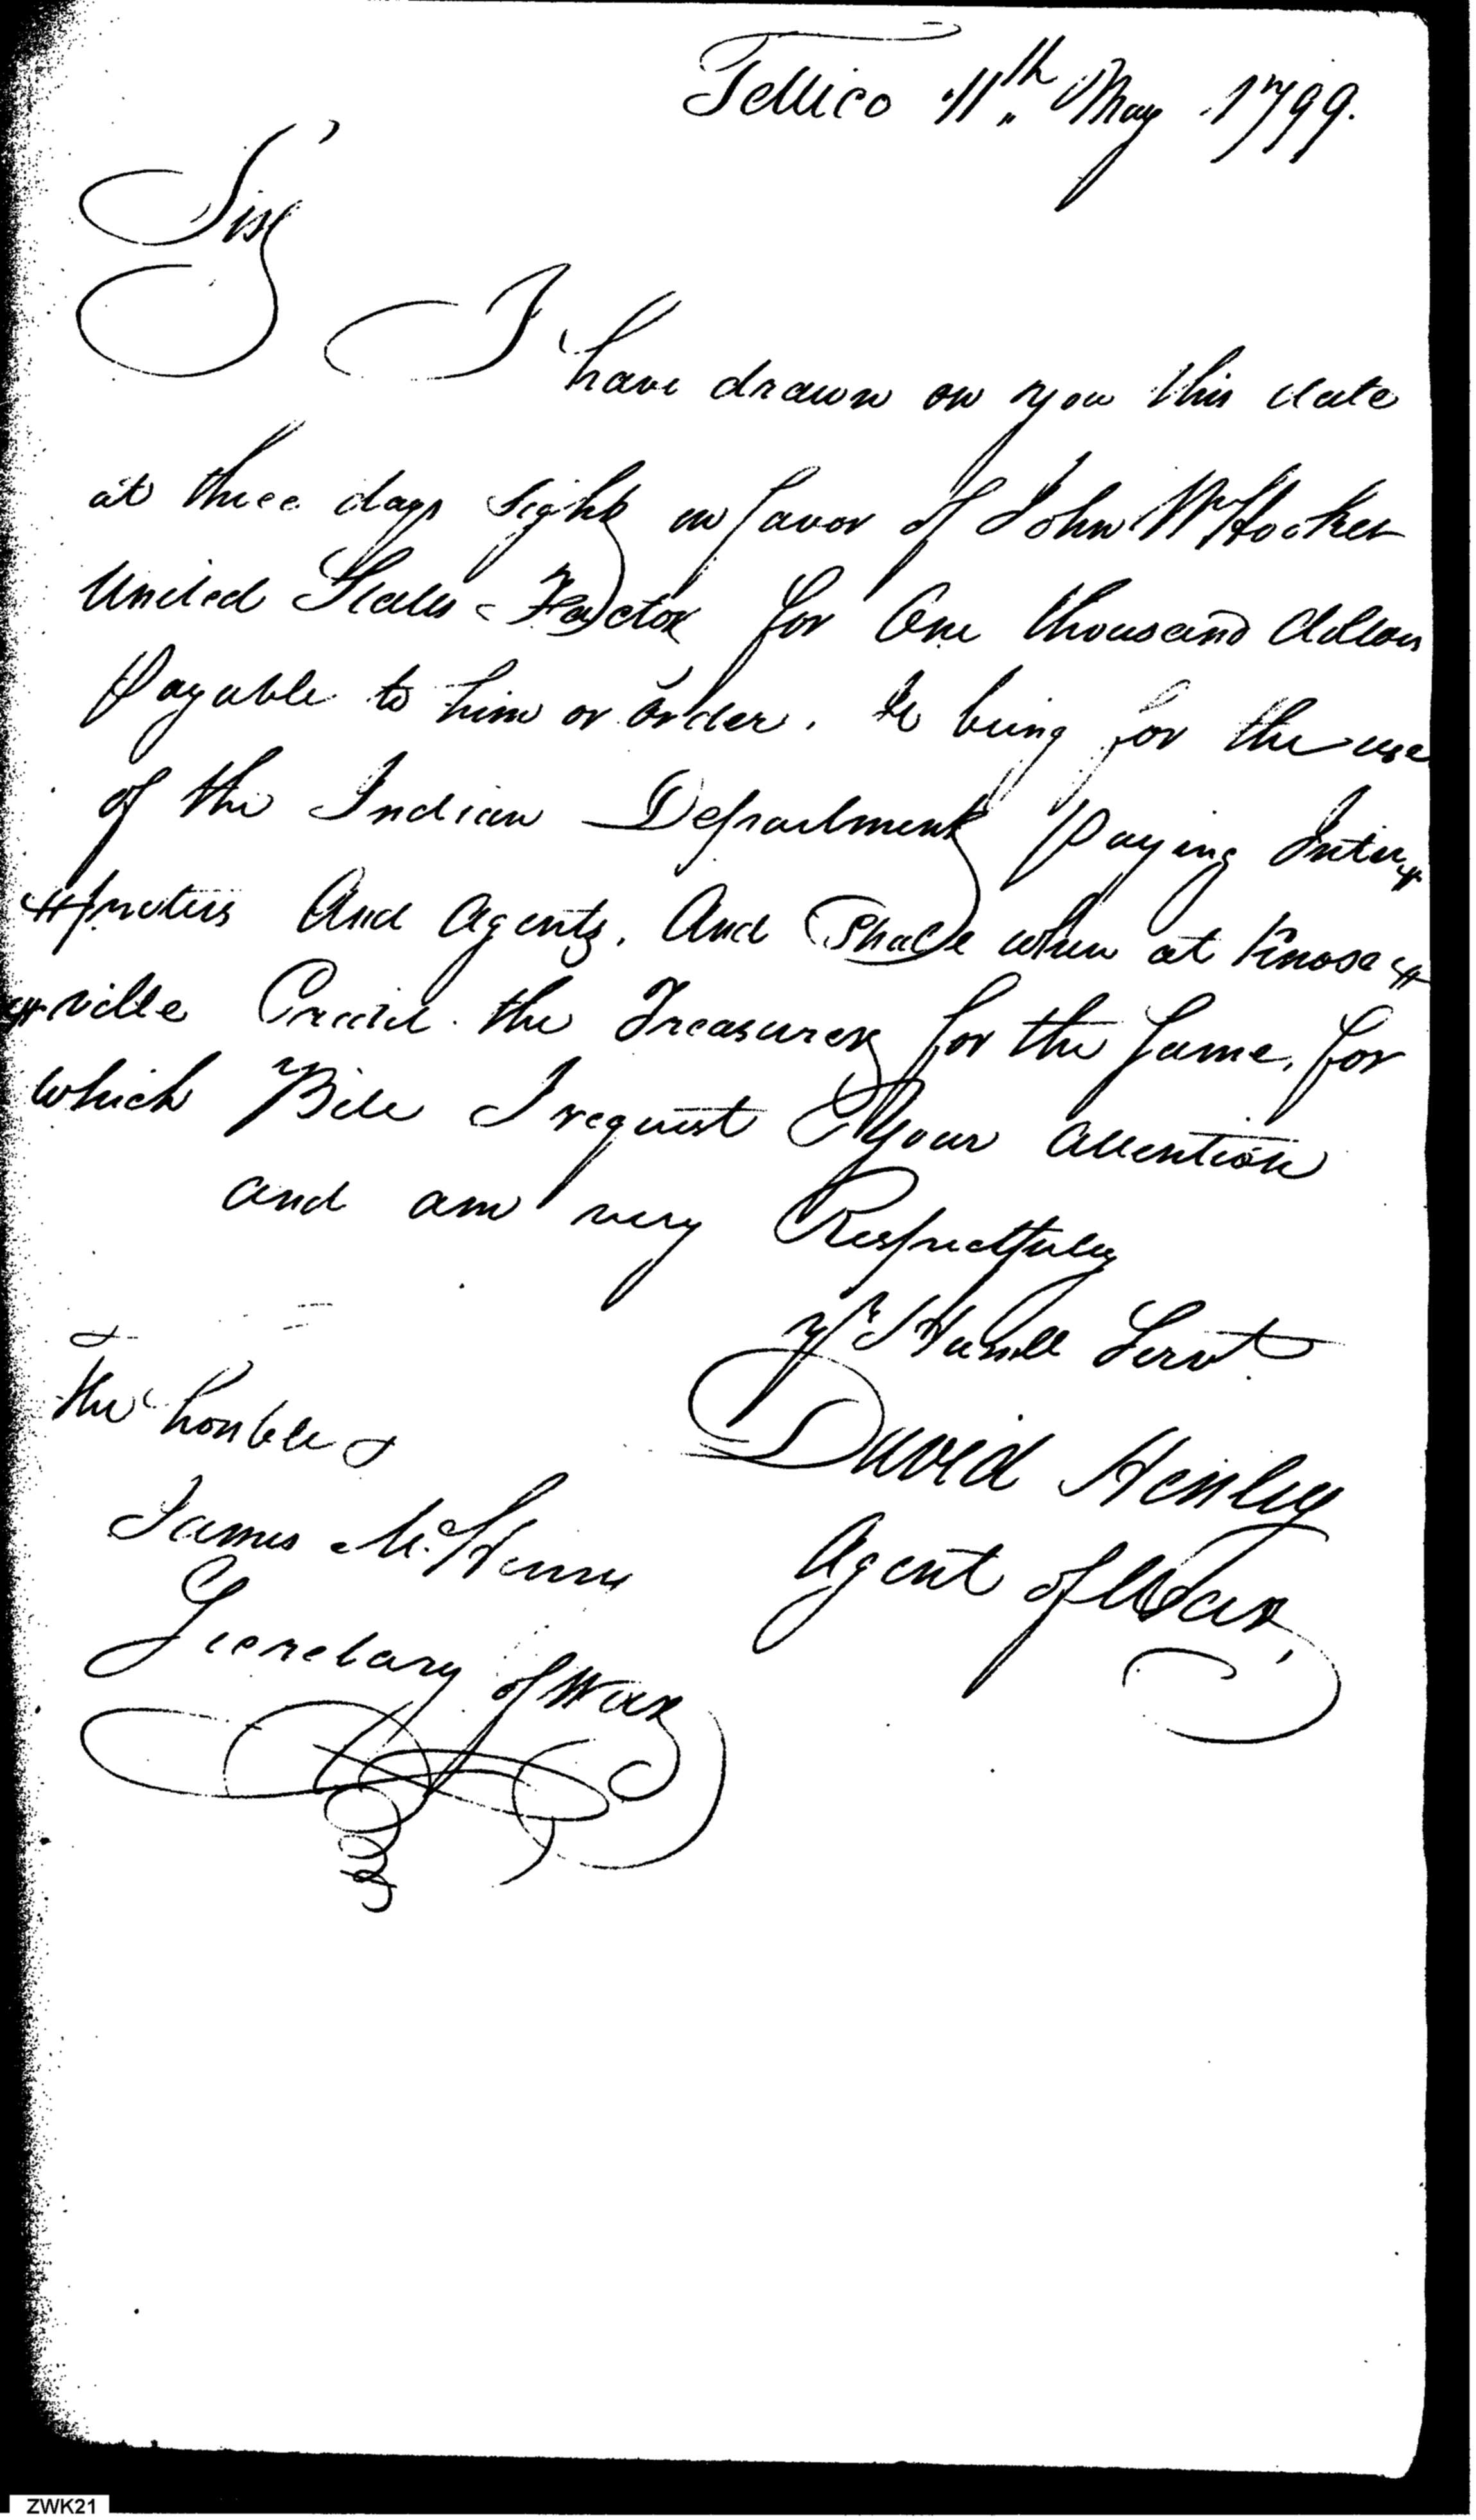 Tellico 11th May 1799.
Sir
I have drawn on you this date
at three days sight in favor of John W Hooker
United States Factor for One thousand dollars
Payable to him or order. It being for the use
of the Indian Department Paying Inter
preters And Agents, And Shall when at Knox
ville Credit the Treasurer for the Same, for
which Bill I request Your attention
and am very Respectfully
yr Humll Servt
David Henley
Agent of War,
The honble
James McHenry
Secretary of War
ZWK21